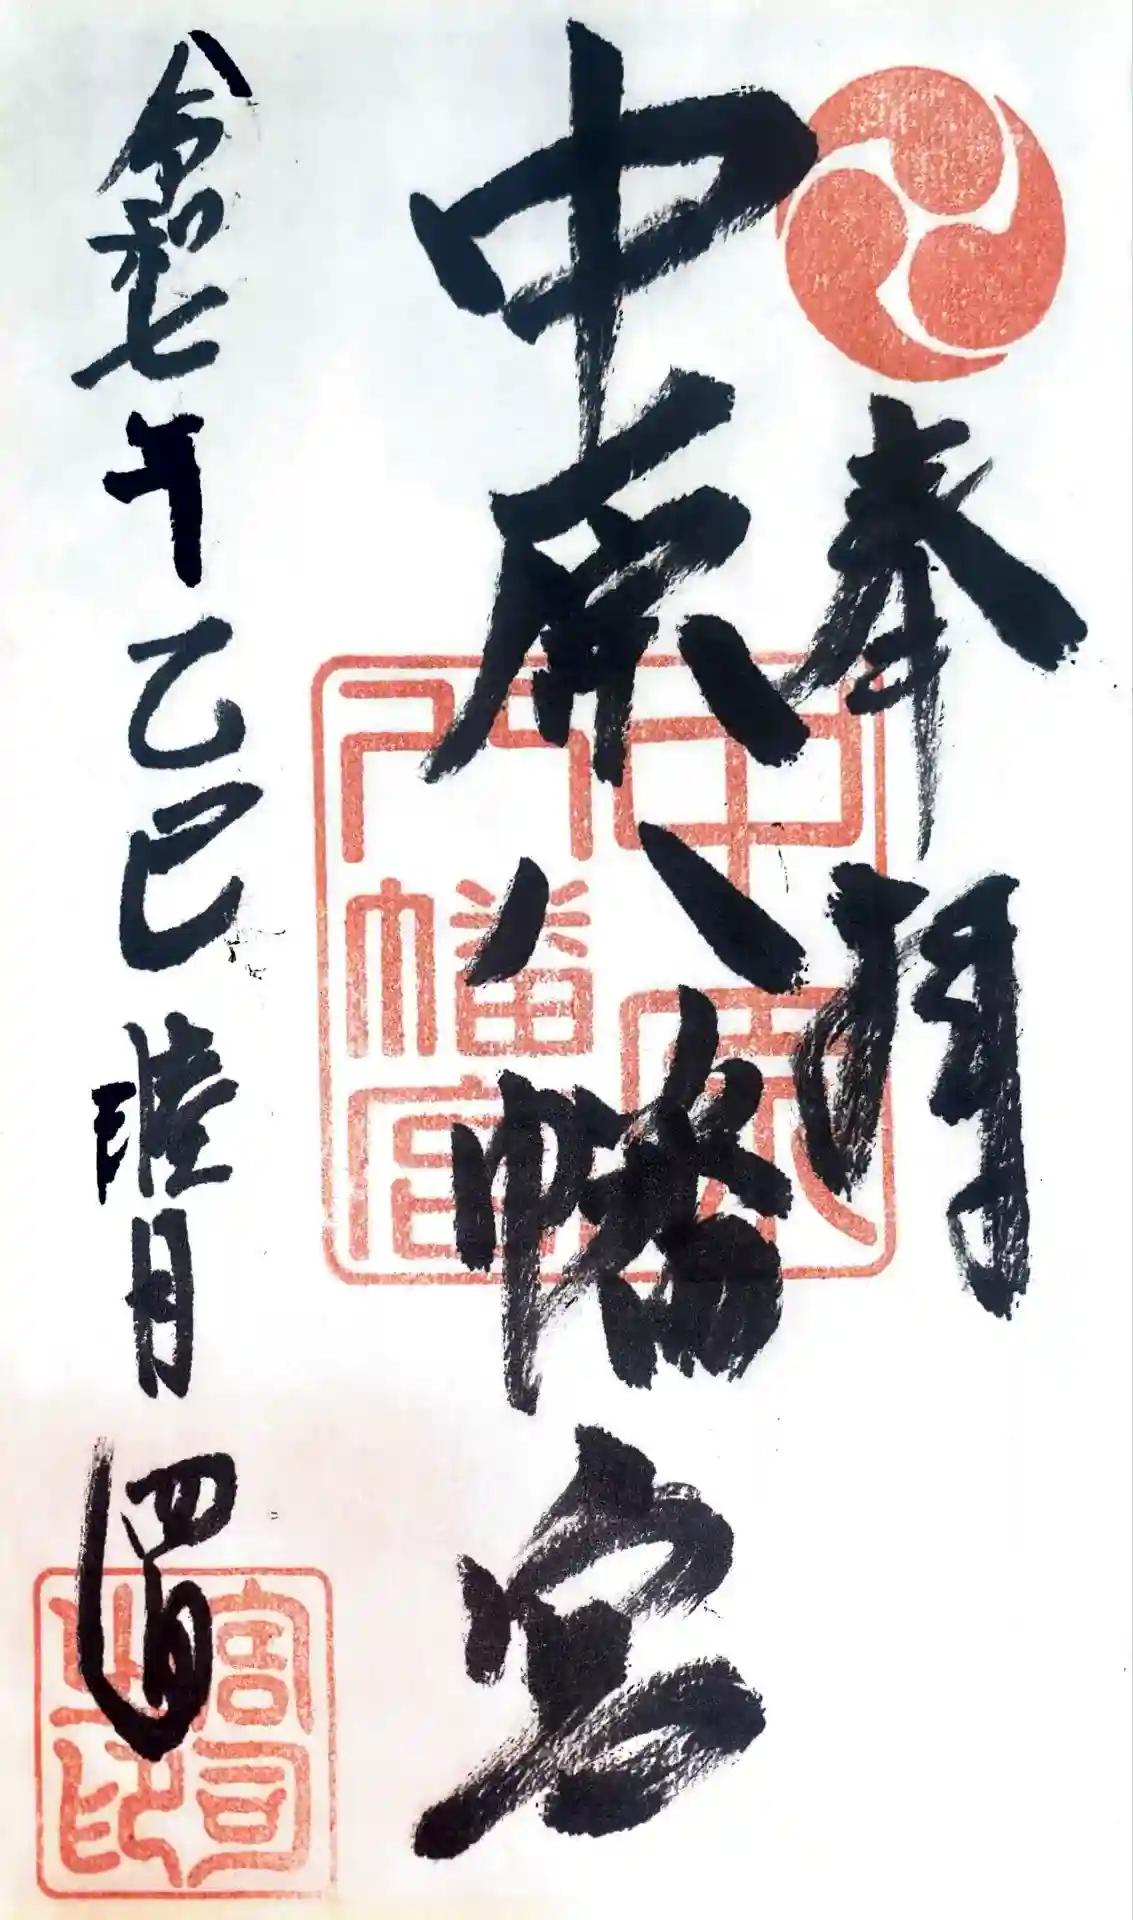 奉拝
中原八幡宮
中原八幡宮
令和七年乙巳陸月四日
宮司之印